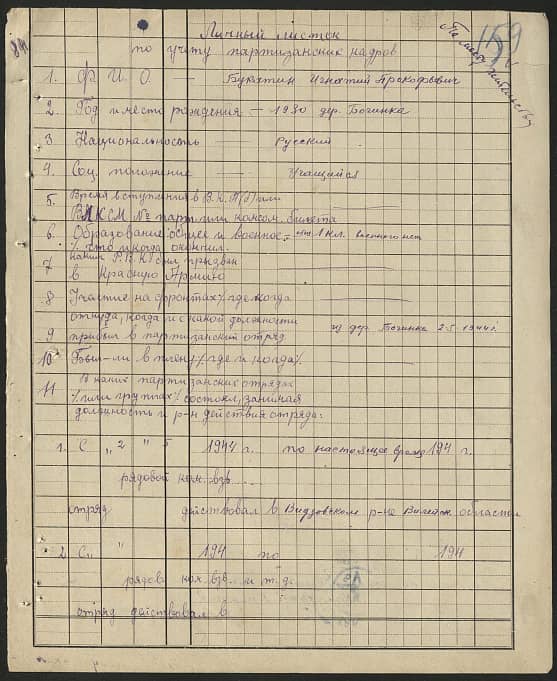 Личный листок
по учету партизанских кадров
159
84
По месту жительства
1. Ф И О — Букатин Игнатий Прокофьевич
2. Год и место рождения — 1930 дер. Богинка
3 Национальность — Русский
4. Соц. положение — Учащийся
5. Время вступления в В.К.П(б) или
ВЛКСМ № парт. или комсом. билета
6 Образование общее и военное, — 1 кл. военного нет
% что и когда окончил.
7 каким Р.В.К. был призван
в Красную Армию
8 Участие на фронтах % где когда
откуда, когда и с какой должности
9 прибыл в партизанский отряд из дер. Богинка 2-5 1944 г.
10 Был-ли в плену % где и когда %.
11 В каких партизанских отрядах
% или группах % состоял, занимая
должность и р-н действия отряда:
1. С „2 " 5 1944 г. по настоящее время 194 г.
рядовой ком. взв....
отряд действовал в Видзовском р-не Вилейск. области
2 С „ " 194 по 194
рядов. ком. взв... и т.д.
отряд действовал в